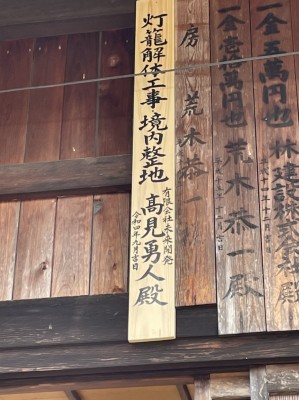 一金五萬円也
林建設株式会社
一金壱萬円也
荒木恭一殿
房
荒木恭一
灯籠解体工事・境内整地
有限会社未来開発
髙見勇人殿
令和四年九月吉日